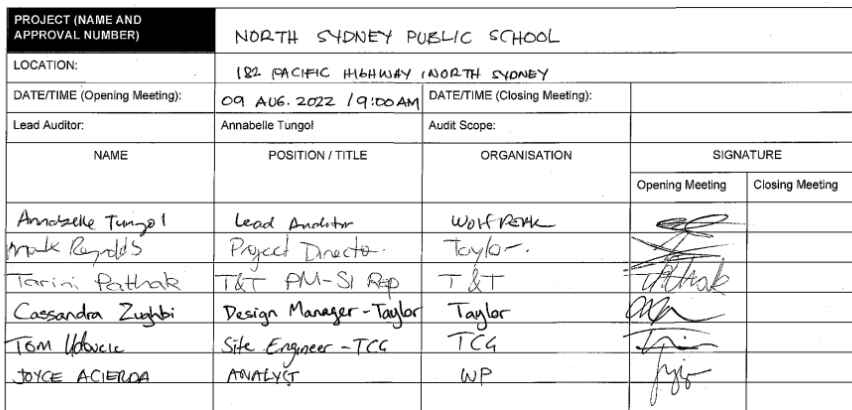 PROJECT (NAME AND APPROVAL NUMBER) NORTH SYDNEY PUBLIC SCHOOL
LOCATION: 182 PACIFIC HIGHWAY, NORTH SYDNEY
DATE/TIME (Opening Meeting): 09 AUG. 2022 / 9:00AM DATE/TIME (Closing Meeting):
Lead Auditor: Annabelle Tungol Audit Scope:
NAME POSITION / TITLE ORGANISATION SIGNATURE
Opening Meeting Closing Meeting
Annabelle Tungol Lead Auditor WolfPeak
Mark Reynolds Project Director. Taylor.
Tarini Pathak T&T PM-SI Rep T&T TPathak
Cassandra Zughbi Design Manager - Taylor Taylor
Tom Site Engineer - TCG TCG
JOYCE ACIERDA ANALYST WP